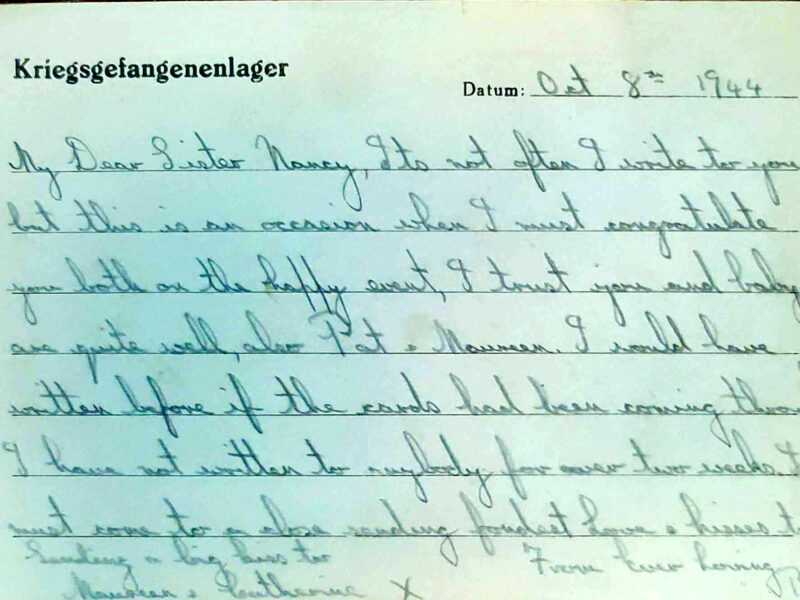 Kriegsgefangenenlager
Datum: Oct 8th 1944
My Dear Sister Nancy, Its not often I write to you
but this is an occasion when I must congratulate
you both on the happy event, I trust you and baby
are quite well, also Pat & Maureen. I would have
written before if the cards had been coming thro
I have not written to anybody for over two weeks. I
must come to a close sending fondest love & kisses to
Sending a big kiss to
From Ever loving
Maureen & Catherine X